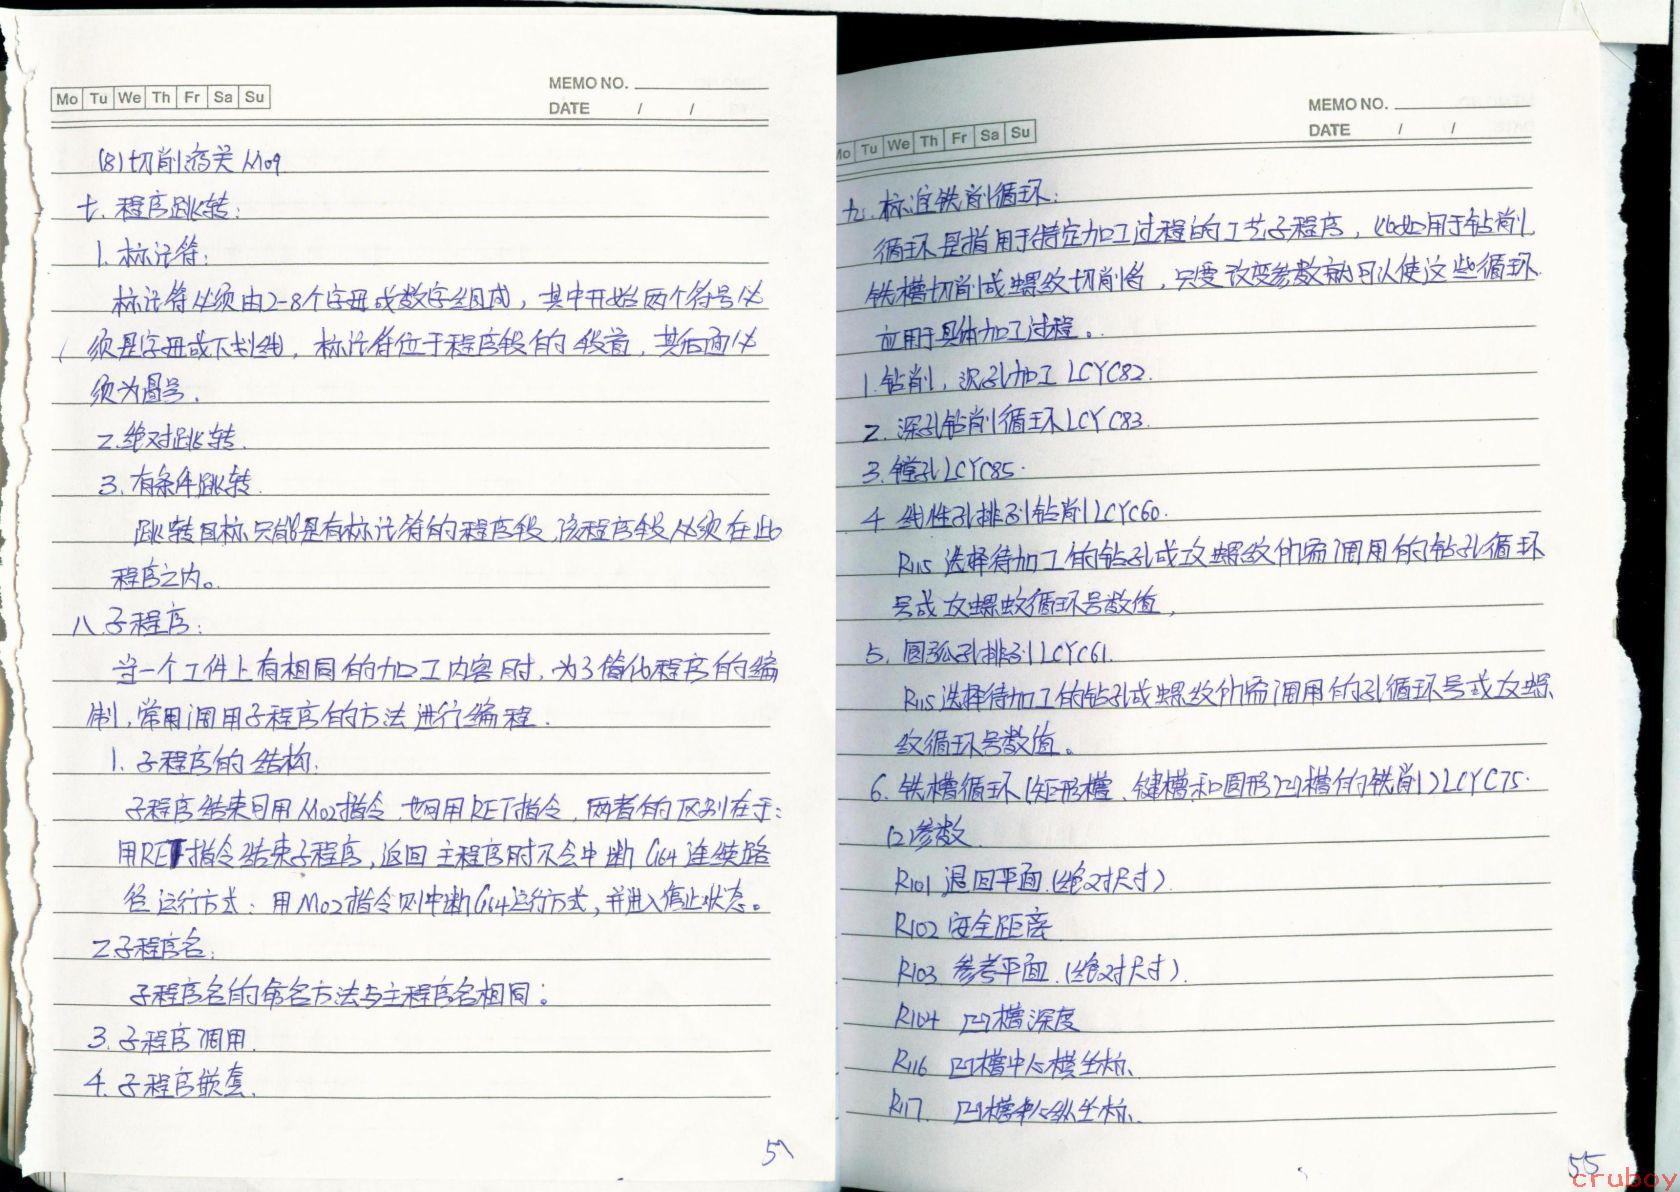 Mo Tu We Th Fr Sa Su
MEMO NO.
DATE / /
(8)切削液关 M09
七.程序跳转:
1.标记符:
标记符必须由2-8个字母或数字组成,其中开始两个符号必
须是字母或下划线,标记符位于程序段的段首,其后面必
须为冒号.
2.绝对跳转.
3.有条件跳转.
跳转目标只能是有标记符的程序段,该程序段必须在此
程序之内。
八.子程序:
当一个工件上有相同的加工内容时,为了简化程序的编
制,常用调用子程序的方法进行编程.
1.子程序的结构.
子程序结束可用M02指令,也可用RET指令,两者的区别在于:
用RET指令结束子程序,返回主程序时不会中断G64连续路
径运行方式;用M02指令则中断G64运行方式,并进入停止状态。
2.子程序名:
子程序名的命名方法与主程序名相同;
3.子程序调用.
4.子程序嵌套.
Mo Tu We Th Fr Sa Su
MEMO NO.
DATE / /
九.标准铣削循环:
循环是指用于特定加工过程的工艺子程序,比如用于钻削,
铣槽切削或螺纹切削等,只要改变参数就可以使这些循环
应用于具体加工过程。
1.钻削,沉孔加工LCYC82.
2.深孔钻削循环LCYC83.
3.镗孔LCYC85.
4.线性孔排列钻削LCYC60.
R115选择待加工的钻孔或攻螺纹所需调用的钻孔循环
号或攻螺蚊循环号数值,
5.圆弧孔排列LCYC61.
R115选择待加工的钻孔或螺纹所需调用的孔循环号或攻螺
纹循环号数值。
6.铣槽循环(矩形槽、键槽和圆形凹槽的铣削)LCYC75.
(2)参数
R101 退回平面.(绝对尺寸).
R102 安全距离
R103.参考平面.(绝对尺寸).
R104 凹槽深度
R116 凹槽中心横坐标、
R117. 凹槽中心纵坐标、
55
cruboy